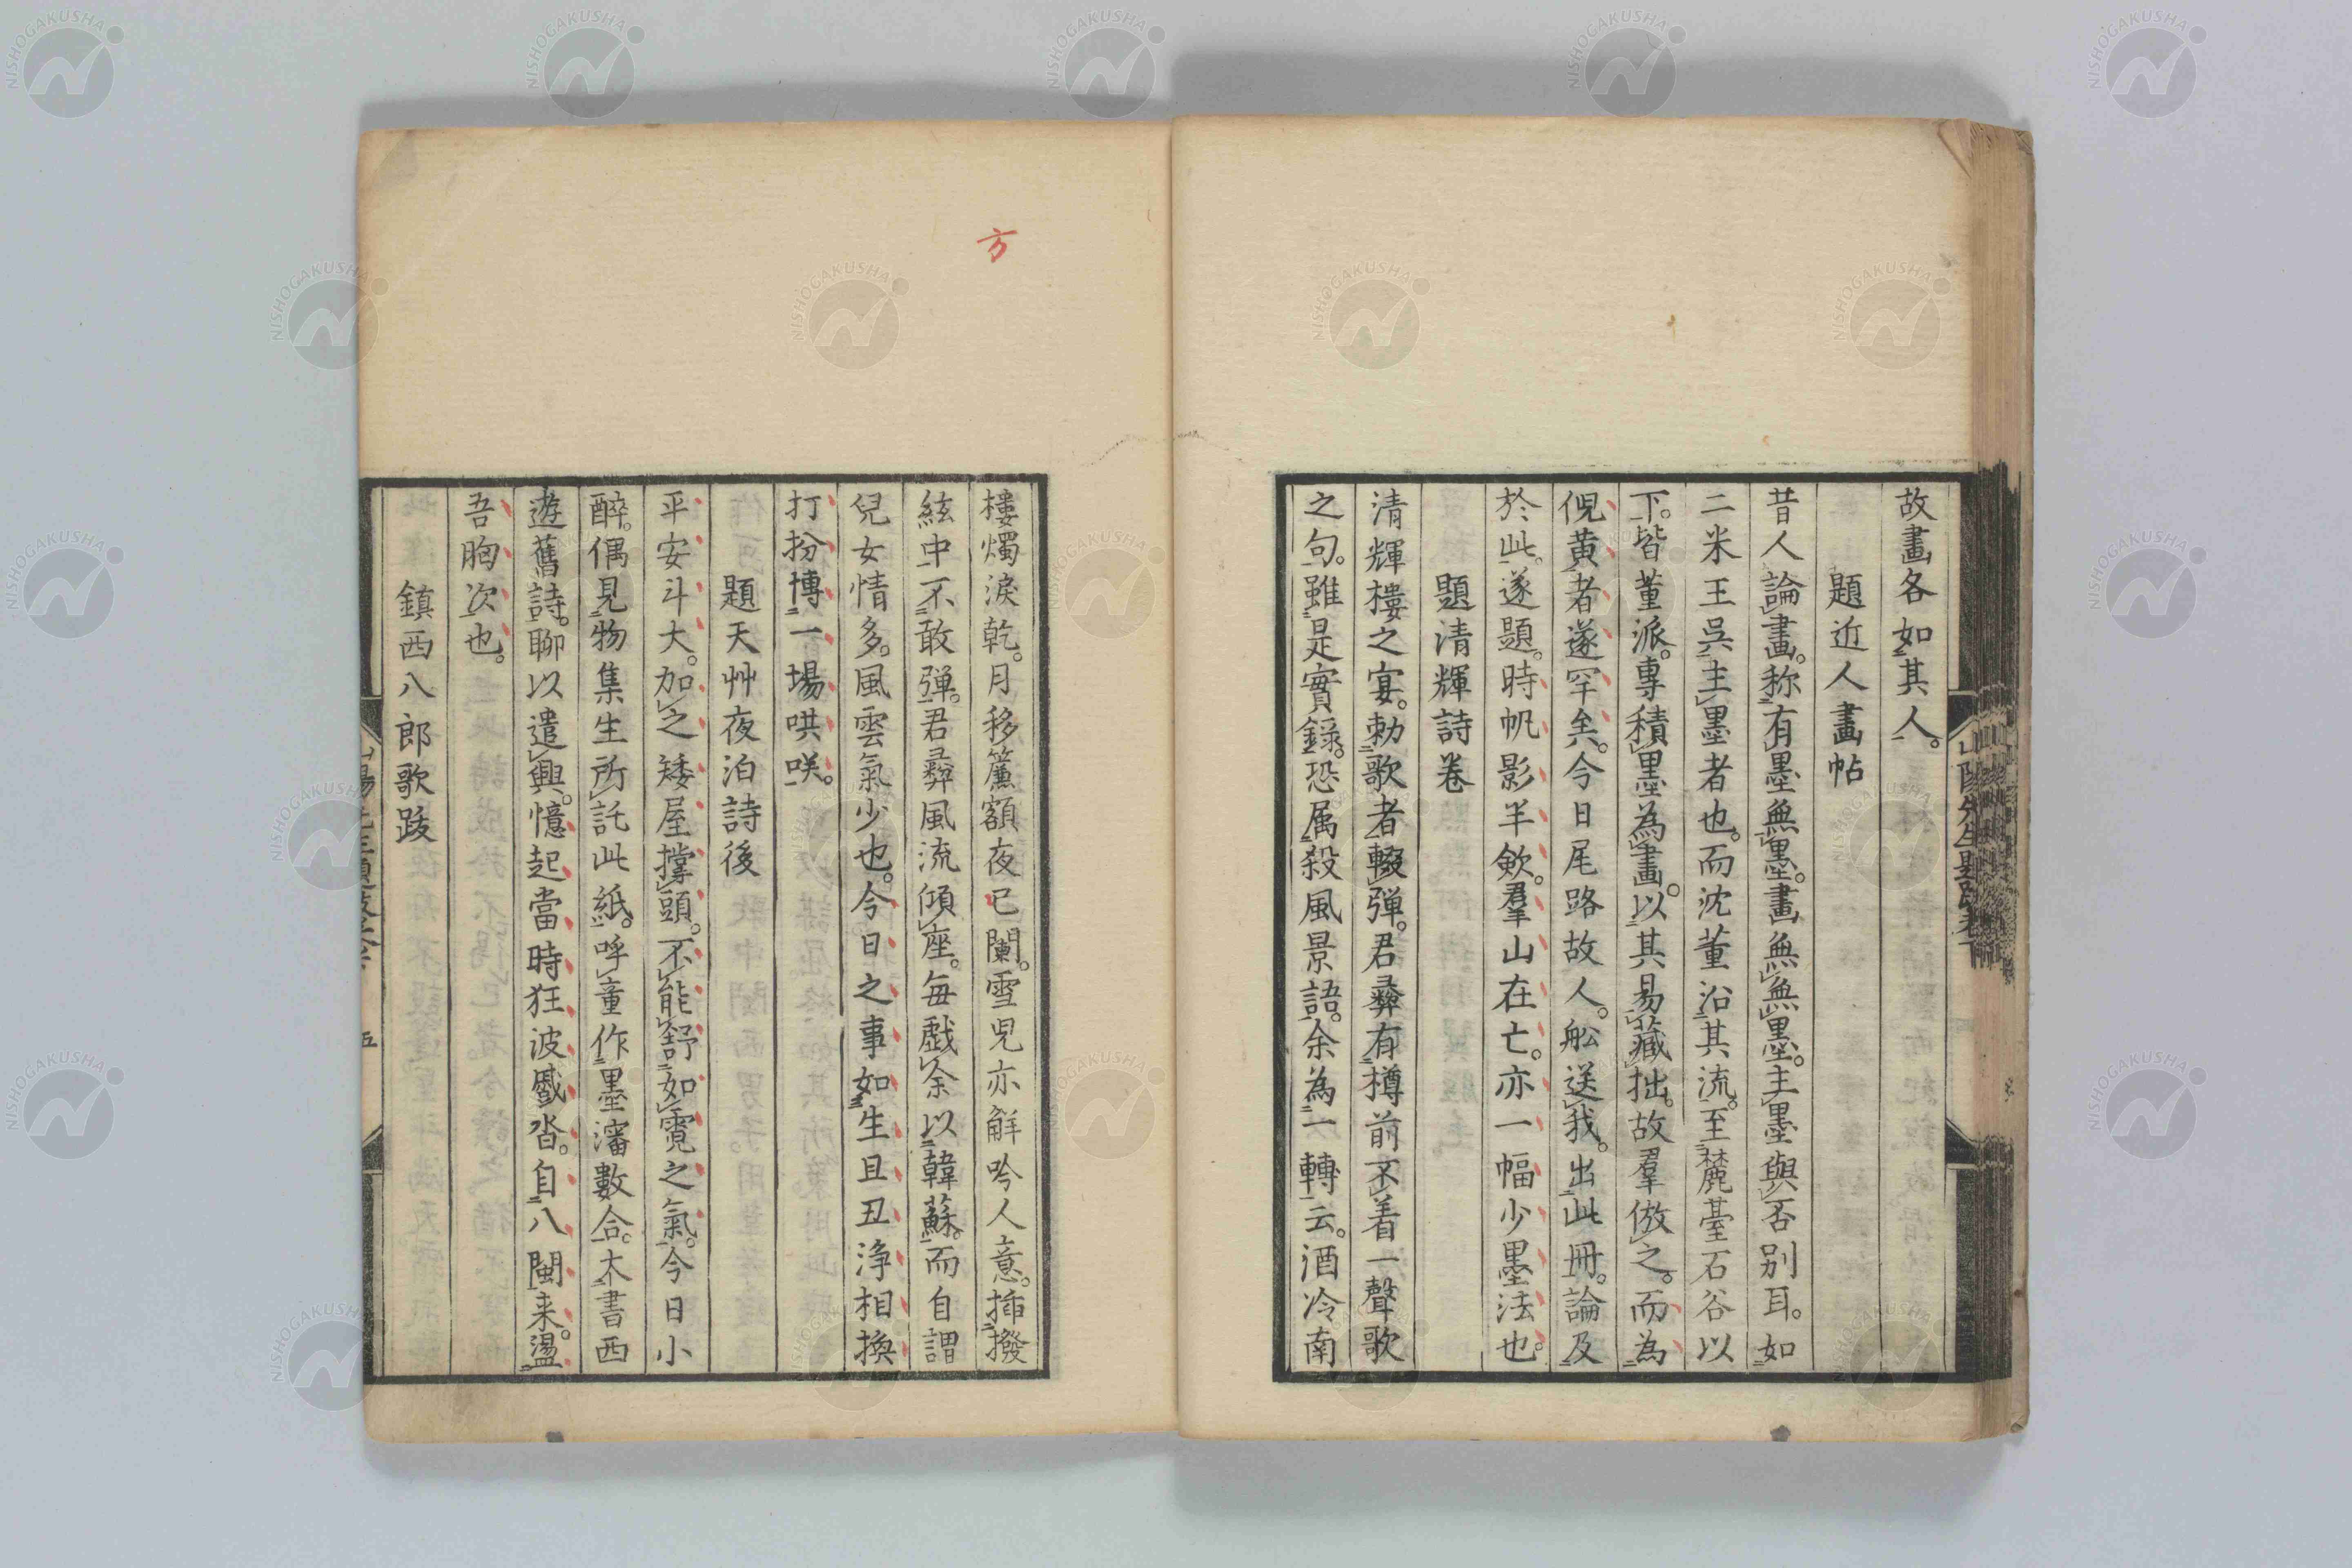 故畫各如其人。
題近人畫帖
昔人論畫。称有墨無墨。畫無無墨。主墨與否別耳。如
二米王吳主墨者也。而沈董沿其流。至麓臺石谷以
下。皆董派。專積墨為畫。以其易藏拙。故羣倣之。而為
倪黄者遂罕矣。今日尾路故人。舩送我。出此冊。論及
於此。遂題。時帆影半欹。羣山在亡。亦一幅少墨法也。
題清輝詩卷
清輝樓之宴。勅歌者輟弾。君彝有樽前不着一聲歌
之句。雖是實録。恐属殺風景語。余為一轉云。酒冷南
樓燭淚乾。月移簾額夜已闌。雪児亦解吟人意。揷撥
絃中不敢弾。君彝風流傾座。毎戯余以韓蘇。而自謂
兒女情多。風雲氣少也。今日之事如生且丑浄相換
打扮博一場哄咲。
題天艸夜泊詩後
平安斗大。加之矮屋撑頭。不能舒如霓之氣。今日小
醉。偶見物集生所託此紙。呼童作墨瀋數合。大書西
遊舊詩。聊以遣興。憶起當時狂波蹙沓。自八閩来。盪
吾胸次也。
鎮西八郎歌跋
方
NISHOGAKUSHA